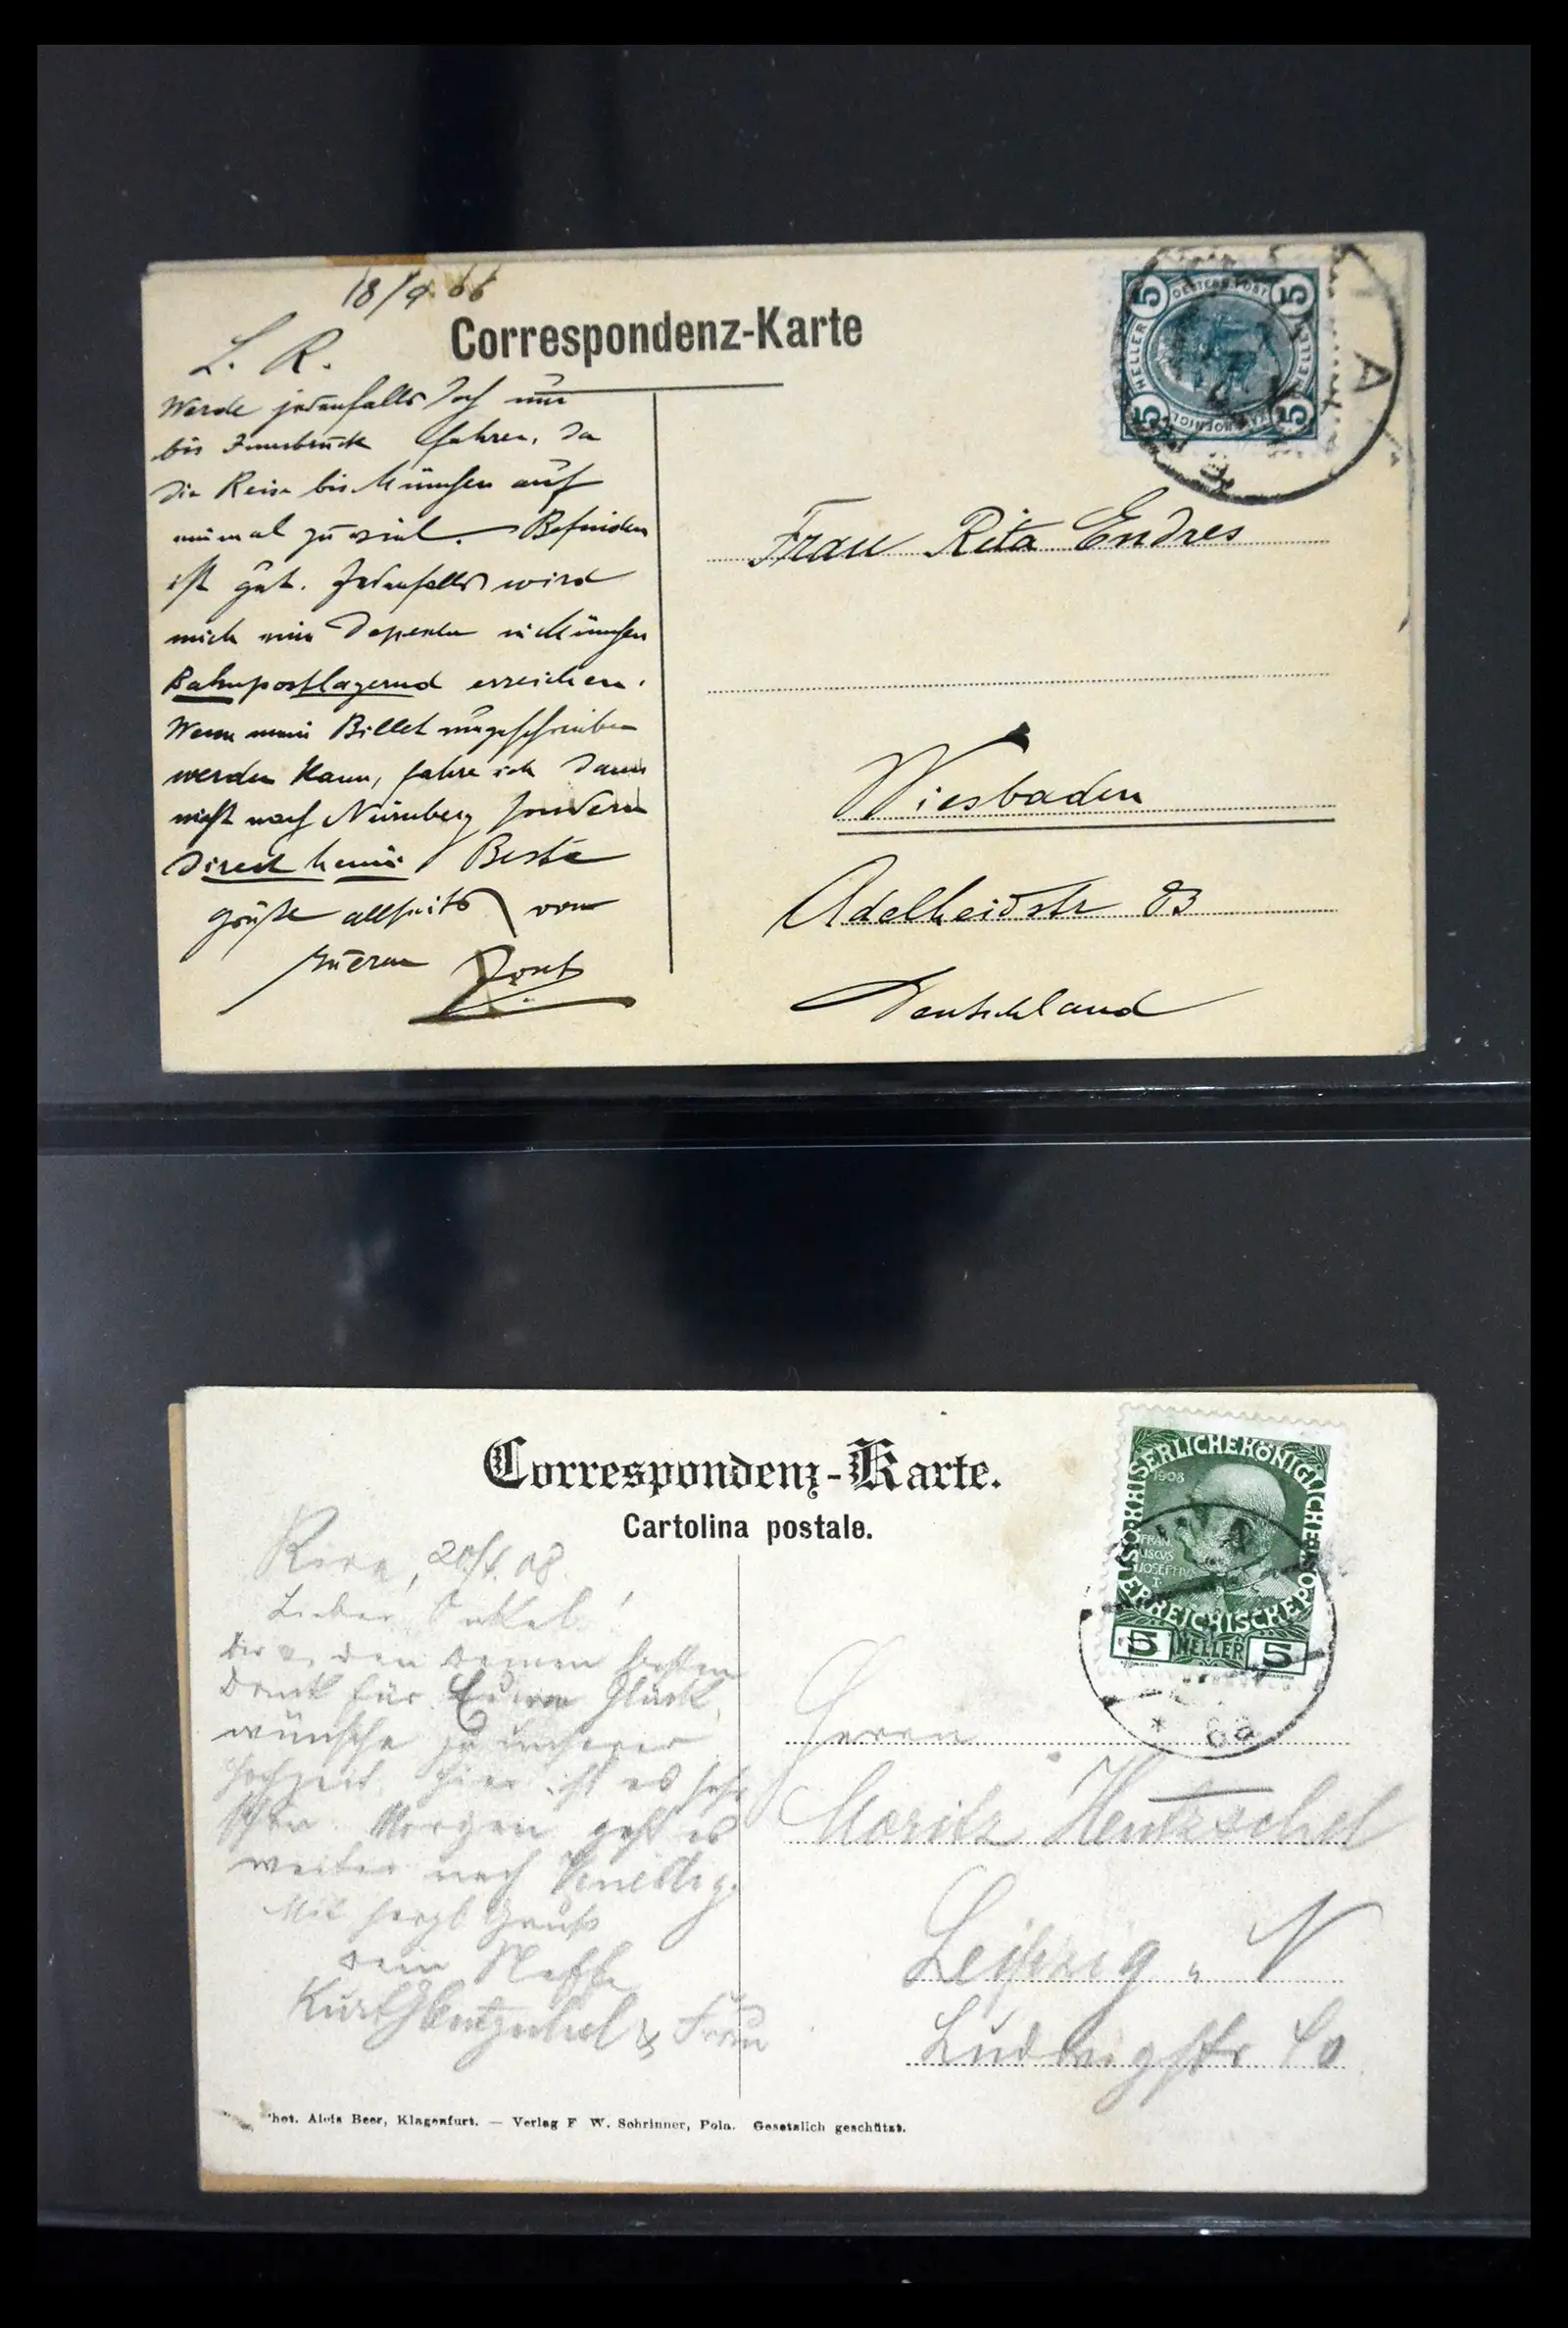 18/9 06
Correspondenz-Karte
L. R.
Werde jedenfalls doch nur
bis Innsbruck fahren, da
die Reise bis München auf
einmal zu viel. Befinden
ist gut. Jedenfalls wird
mich eine Depesche in München
Bahnpostlagernd erreichen.
Wenn mein Billet umgeschrieben
werden kann, fahre ich dann
nicht nach Nürnberg sondern
direct heim! Beste
Grüße allseits von
Euerem
5 5
OESTERR. POST
HELLER HELLER
5 5
A
Frau Rita Endres
Wiesbaden
Adelheidstr 83
Deutschland
Correspondenz-Karte.
Cartolina postale.
KAISERLICHE KÖNIGLICHE
ÖSTERREICHISCHE POST
1908
FRAN
CISCUS
JOSEPHUS
I
5 HELLER 5
* 6a
Riva, 20/ 08.
Lieber Onkel!
Dir u. den Deinen besten
Dank für Eure Glück
wünsche zu unserer
Hochzeit. Hier ist es sehr
schön. Morgen geht es
weiter nach Venedig.
Mit herzl Gruß
Dein Neffe
Kurt Hentzschel & Frau
Herrn
Moritz Hentzschel
Leipzig, N
Ludwigstr 40
Phot. Alois Beer, Klagenfurt. — Verlag F. W. Schrinner, Pola. Gesetzlich geschützt.